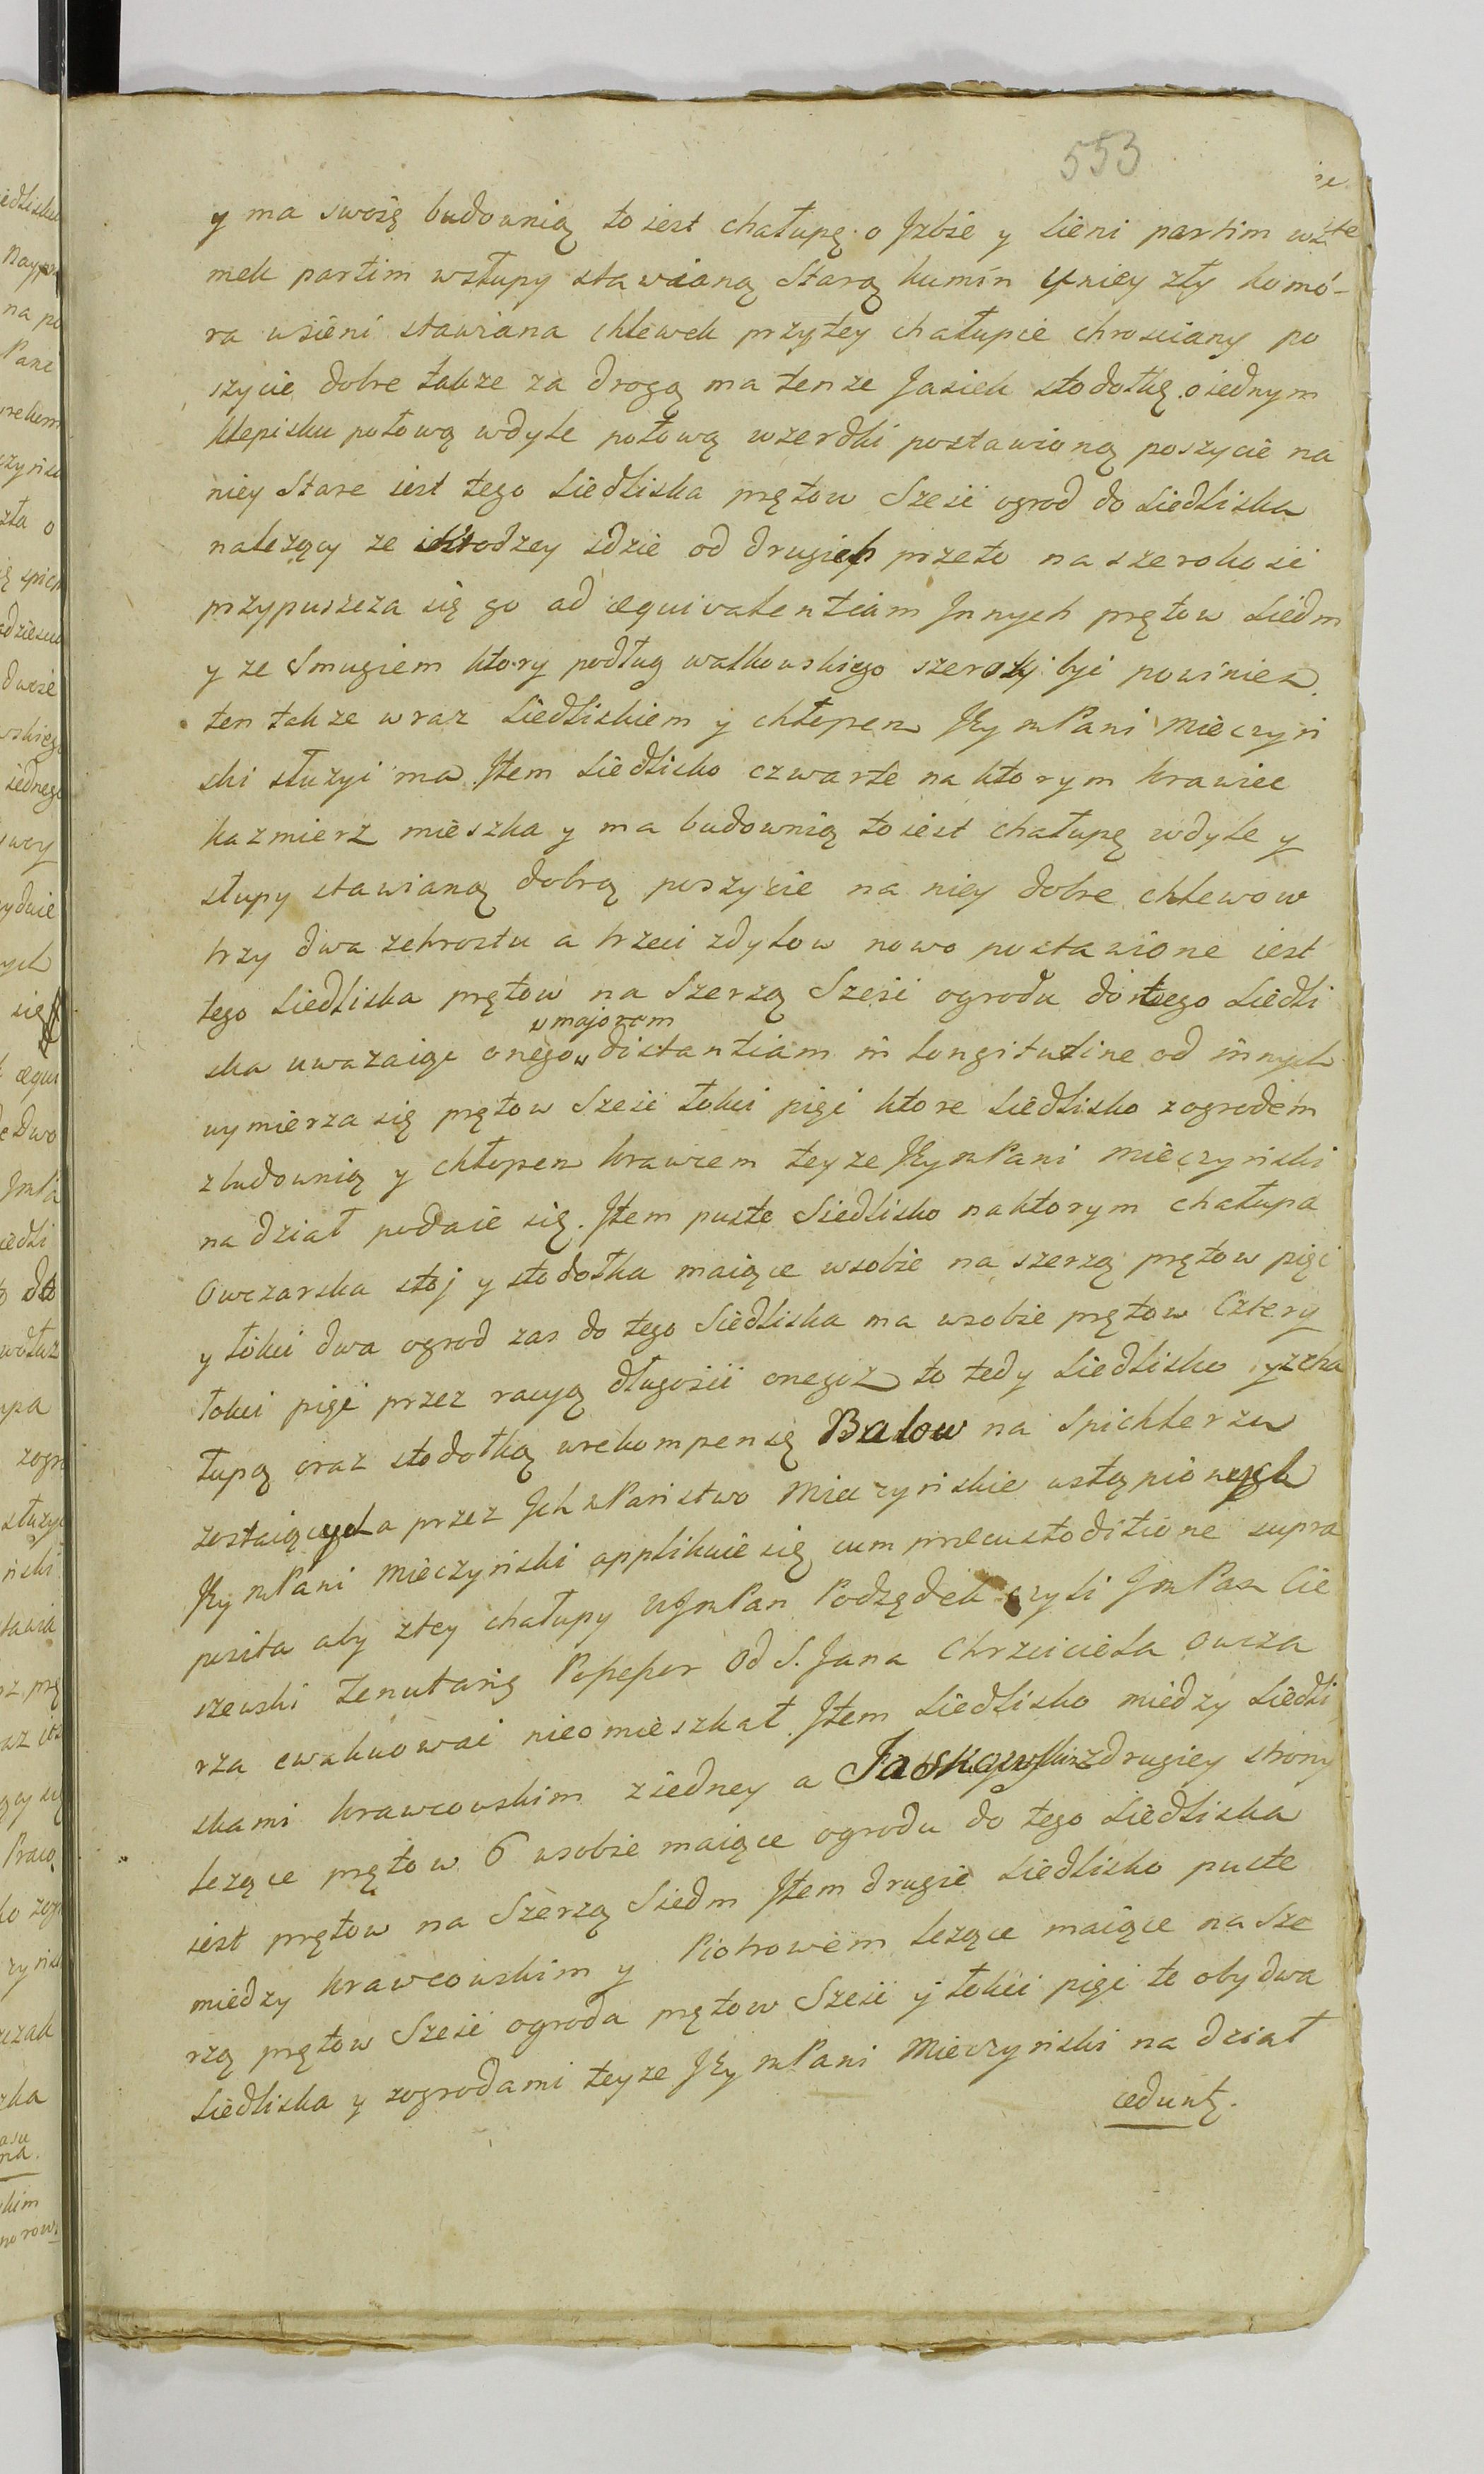 553
y ma swoię budownią to iest chałupę o Jzbie y sieni partim wszte
mek partim wsłupy stawianą Starą kumin Uniey zły komó-
ra wsieni stawiana chlewek przytey chałupie chrosciany po
szycie dobre także za drogą ma tenze Jasiek stodołkę o iednym
klepisku połową wdyle połową wzerdki postawioną poszycie na
niey Stare iest tego Siedliska prętow Sześć ogrod do siedliska
nalezący ze idzie od drugich przeto na szerokość
przypuszcza się go ad æquivalentiam Jnnych prętow siedm
y ze Smugiem ktory podług walkowskiego szeroky być powinien
ten takze wraz siedliskiem y chłopem JEy mPani Mieczyń
ski słuzyć ma Jtem siedlisko czwarte na ktorym krawiec
kazmierz mieszka y ma budownią to iest chałupę wdyle y
słupy stawianą dobrą poszycie na niey dobre chlewow
trzy dwa zchrostu a trzeci zdylow nowo postawione iest
tego siedliska prętow na Szerzą Sześć ogrodu do tego siedli
ska uwazaiąc onego majorem distantiam in longitudine od innych
wymierza się prętow Sześć łokci pięć ktore siedlisko zogrodem
zbudownią y chłopem krawcem teyze JEymPani Mieczyński
na dział podaie się. Jtem puste Siedlisko naktorym chałupa
Owczarska stoj y stodołka maiące wsobie na szerzą prętow pięć
y łokci dwa ogrod zas do tego Siedliska ma wsobie prętow Cztery
łokci pięć przez racyą długości onegoz to tedy siedlisko yzcha
łupą oraz stodołką wrekompensę Balow na Spichlerzu
zostaiących a przez Jch mPaństwo Mieczyńskie ustąpionych
JEymPani Mieczyński applikuie się cum præcustoditione supra
posita aby ztey chałupy WJmPan Podsędek czyli JmPan Cie
szewski tenutarius Possessor Od S. Jana Chrzciciela Owcza
rza ewakuować nieomieszkał. Jtem siedlisko między siedli
skami krawcowskim ziedney a zdrugiey strony
lezące prętow 6 wsobie maiące ogrodu do tego siedliska
iest prętow na Szerzą Siedm Jtem drugie siedlisko puste
miedzy krawcowskim y Piotrowem lezące maiące na Sze
rzą prętow Sześć ogroda prętow Sześć y łokci pięć te obydwa
siedliska y zogrodami teyze JEy mPani Mieczyński na dział
cedunt.